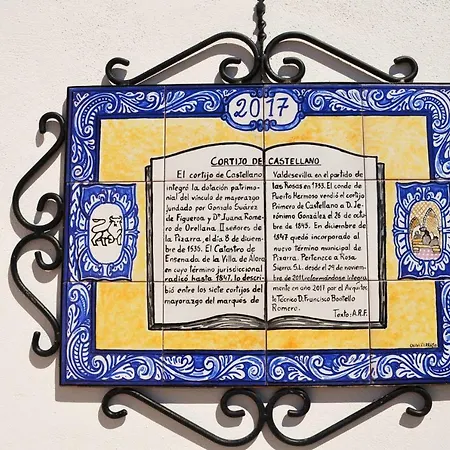 2017
CORTIJO DE CASTELLANO
El cortijo de Castellano
integró la dotación patrimo-
nial del vínculo de mayorazgo
fundado por Gonzalo Suárez
de Figueroa, y Dª Juana Rome-
ro de Orellana. II señores de
la Pizarra, el día 6 de diciem-
bre de 1535. El Catastro de
Ensenada de la Villa de Álora
en cuyo término jurisdiccional
radicó hasta 1847, lo descri-
bió entre los siete cortijos del
mayorazgo del marqués de
Valdesevilla en el partido de
las Rosas en 1753. El conde de
Puerto Hermoso vendió el cortijo
Primero de Castellano a D. Je-
rónimo González el 26 de octu-
bre de 1843. En diciembre de
1847 quedó incorporado al
nuevo Término municipal de
Pizarra. Pertenece a Rosa
Sierra S.L. desde el 29 de noviem-
bre de 2011, reformándose íntegra
mente en año 2017 por el Arquitec-
to Técnico D. Francisco Bootello
Romero.
Texto: A.R.F.